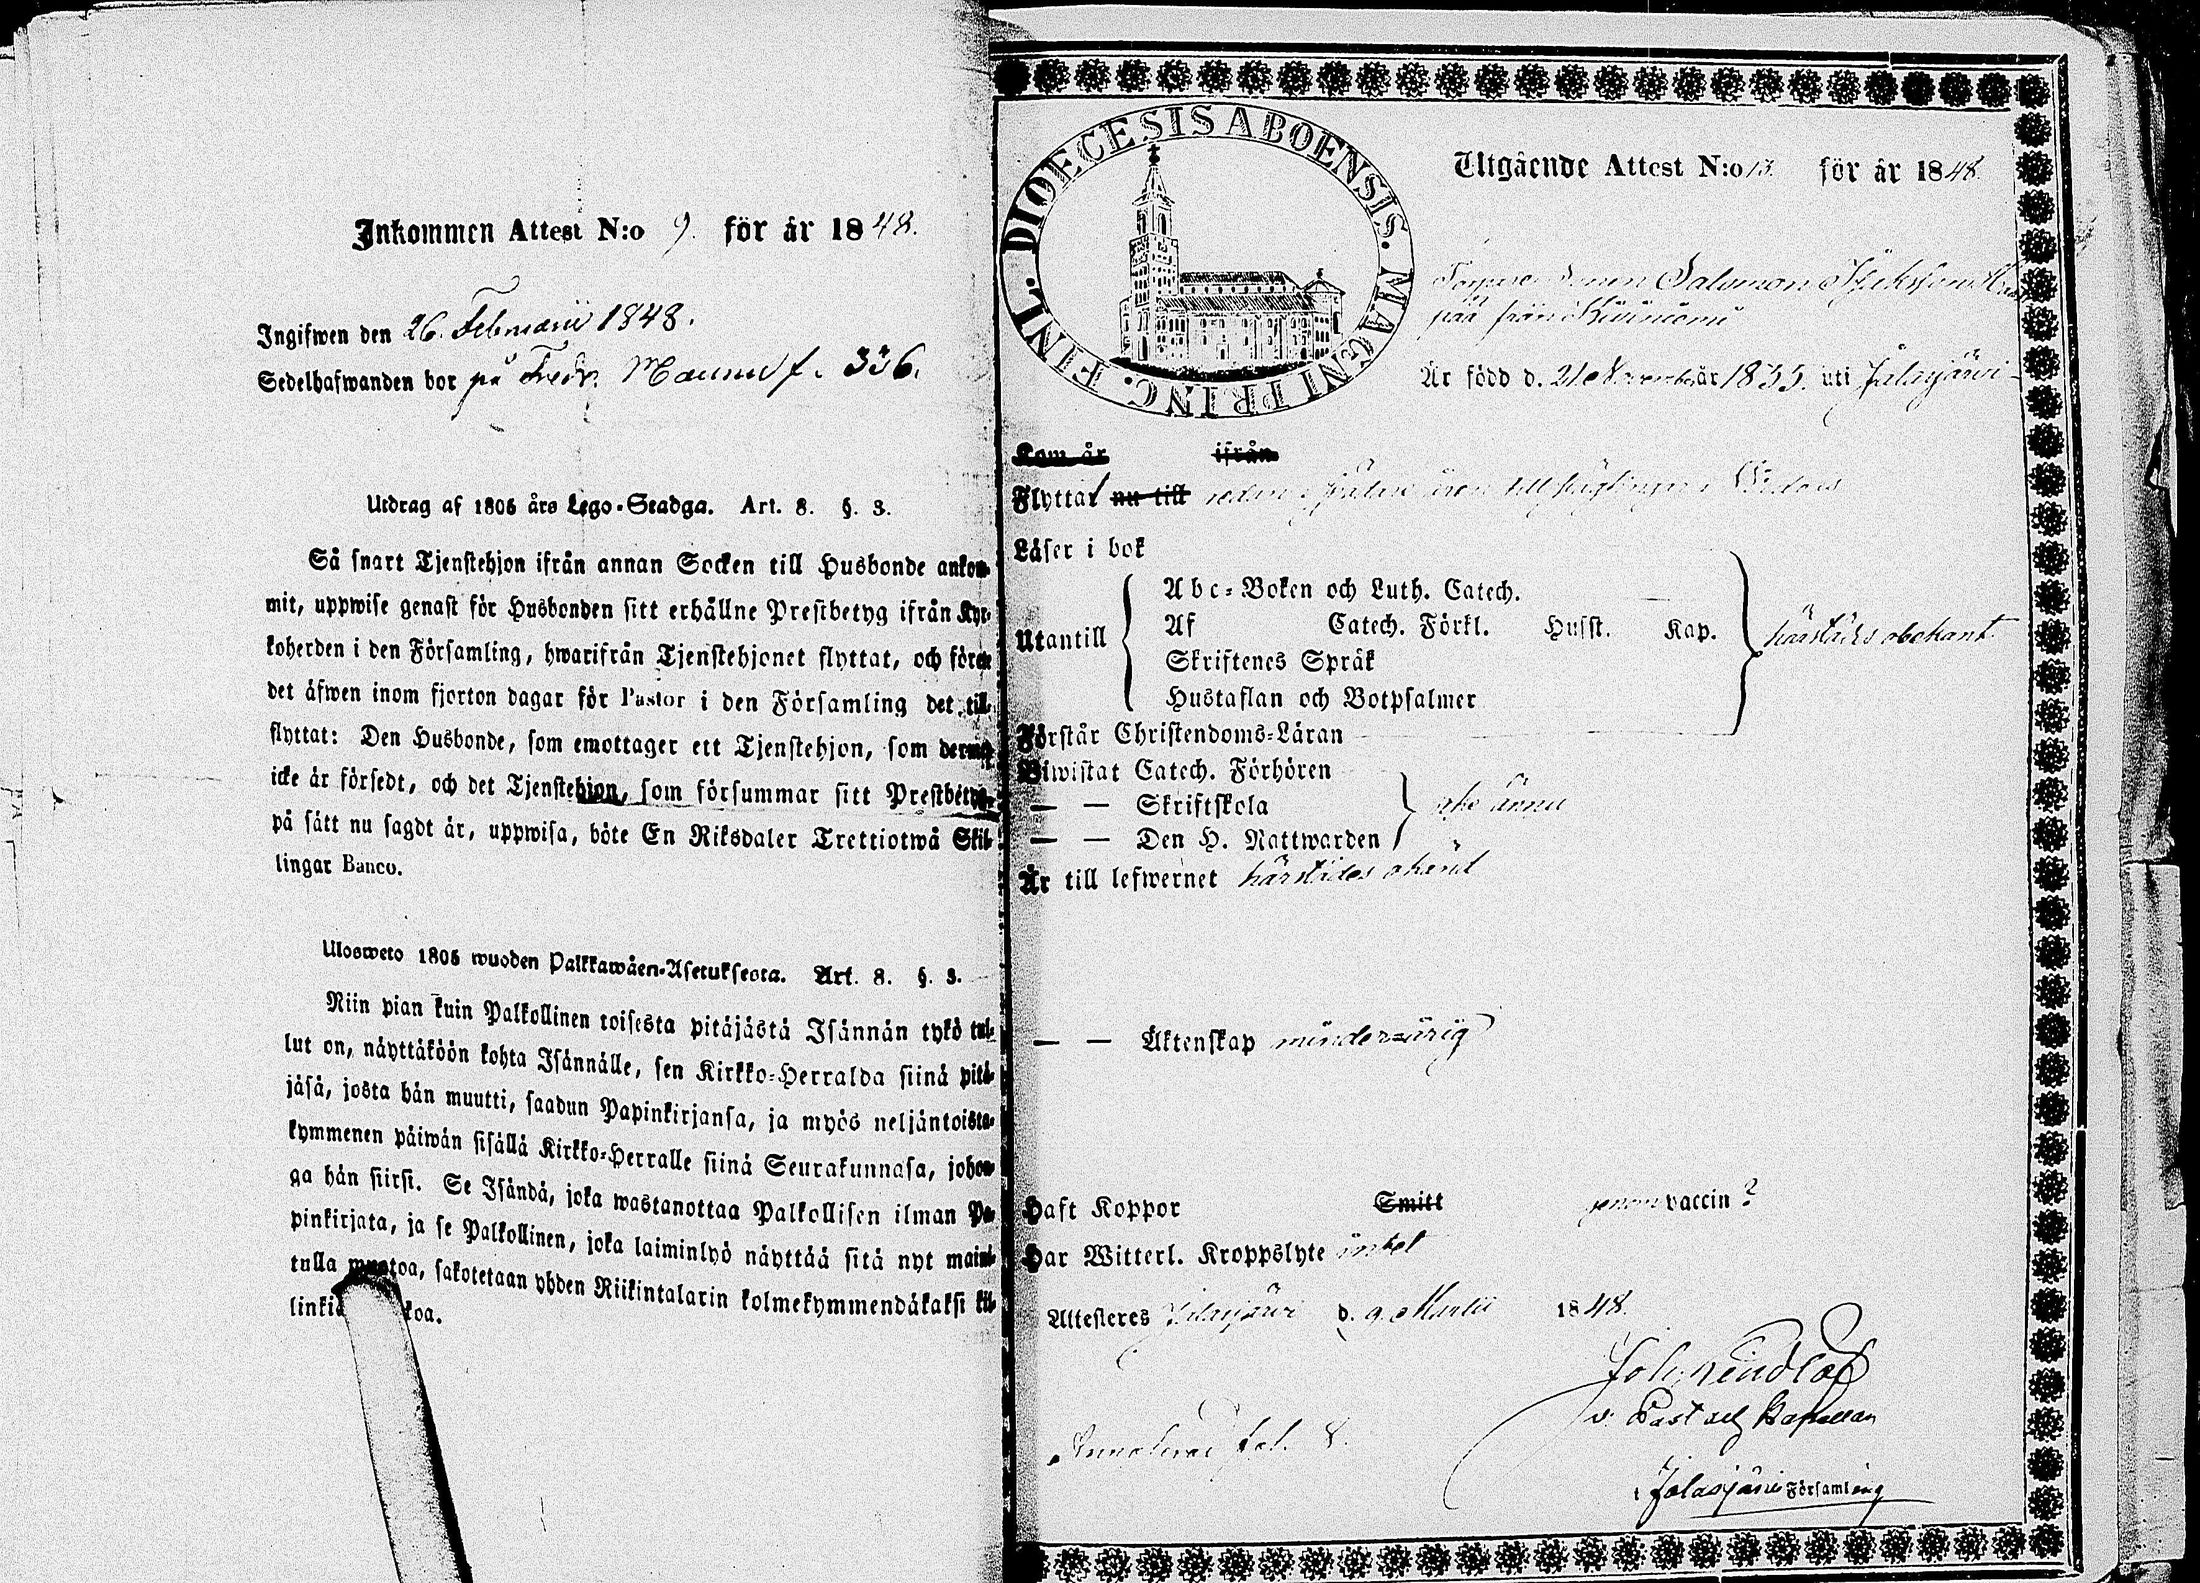 Inkommen Attest N:o 9. för år 1848.
Ingifwen den 26. Februarii 1848.
Sedelhafwanden bor på Fredr. f. 336.
Utdrag af 1805 års Lego-Stadga. Art. 8. §. 3.
Så snart Tjenstehjon ifrån annan Socken till Husbonde ankom-
mit, uppwise genast för Husbonden sitt erhållne Prestbetyg ifrån Kyr-
koherden i den Församling, hwarifrån Tjenstehjonet flyttat, och förete
det äfwen inom fjorton dagar för Pastor i den Församling det till-
flyttat: Den Husbonde, som emottager ett Tjenstehjon, som dermed
icke är försedt, och det Tjenstehjon, som försummar sitt Prestbetyg,
på sätt nu sagdt är, uppwisa, böte En Riksdaler Trettiotwå Skil-
lingar Banco.
Ulosweto 1805 wuoden Palkkawäen-Asetuksesta. Art. 8. §. 3.
Niin pian kuin Palkollinen toisesta pitäjästä Isännän tykö tul-
lut on, näyttäköön kohta Isännälle, sen Kirkko-Herralda siinä pitä-
jäsä, josta hän muutti, saadun Papinkirjansa, ja myös neljäntoista-
kymmenen päiwän sisällä Kirkko-Herralle siinä Seurakunnasa, johon-
ga hän siirsi. Se Isändä, joka wastanottaa Palkollisen ilman Pa-
pinkirjata, ja se Palkollinen, joka laiminlyö näyttää sitä nyt maini-
tulla muotoa, sakotetaan yhden Riikintalarin kolmekymmendäkaksi kil-
linkiä koa.
FINL. DIOECESIS ABOENSIS. MAGNI PRINC.
Utgående Attest N:o 13. för år 1848.
Salomon
från
Är född d. 21 November år 1835. uti Jalasjärvi
Kom år ifrån
Flyttat nu till redan till
Läser i bok
Utantill
Abc-Boken och Luth. Catech.
Af Catech. Förkl. Husst. Kap.
Skriftenes Språk
Hustaflan och Botpsalmer
härstädes obekant.
Förstår Christendoms-Läran
Biwistat Catech. Förhören
— — Skriftskola
— — Den H. Nattwarden
icke ännu
Är till lefwernet härstädes okänd
— — Äktenskap minderårig
Haft Koppor Smitt genom vaccin?
Har Witterl. Kroppslyte intet
Attesteres Jalasjärvi d. 9 Martii 1848.
Joh.
v. Past. och Kapellan
i Jalasjärvi Församling
fol. 8.